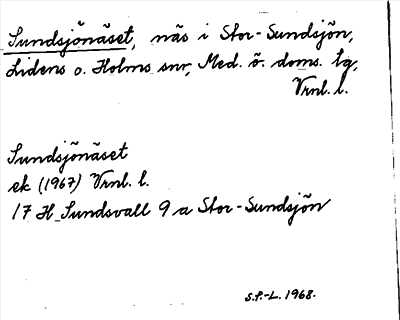 Sundsjönäset, näs i Stor-Sundsjön,
Lidens o. Holms snr, Med. ö. doms. tg,
Vrnl. l.
Sundsjönäset
ek (1967) Vrnl. l.
17 H Sundsvall 9 a Stor-Sundsjön
S.P.-L. 1968.